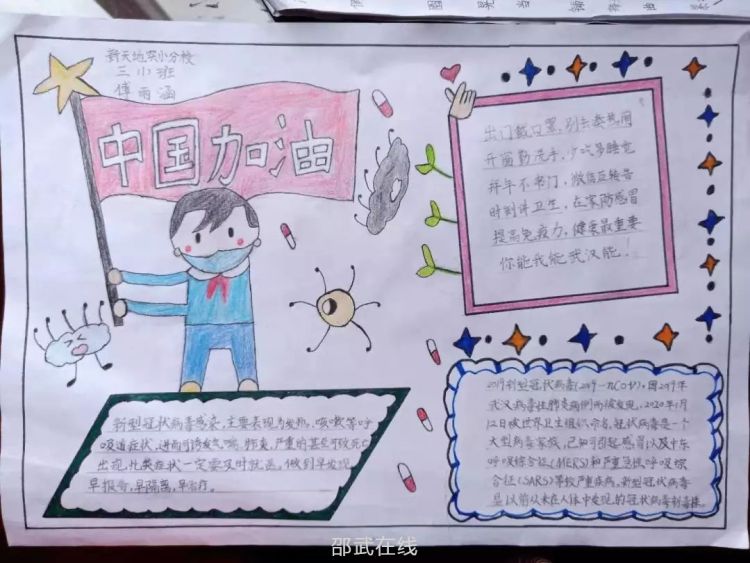 新天地实小分校
三小班
傅雨涵
中国加油
出门戴口罩,别去凑热闹
开窗勤洗手,少吃多睡觉
拜年不串门,微信互转告
时刻讲卫生,在家防感冒
提高免疫力,健康最重要
你能我能武汉能!
新型冠状病毒感染,主要表现为发热,咳嗽等呼
吸道症状,进而可诱发气喘,肺炎,严重的甚至可致死亡
出现此类症状一定要及时就医,做到早发现
早报告,早隔离,早治疗。
2019新型冠状病毒(2019-nCoV),因2019年
武汉病毒性肺炎病例而被发现,2020年1月
12日被世界卫生组织命名,冠状病毒是一个
大型病毒家族,已知可引起感冒以及中东
呼吸综合征(MERS)和严重急性呼吸综
合征(SARS)等较严重疾病,新型冠状病毒
是以前从未在人体中发现的冠状病毒新毒株。
邵武在线